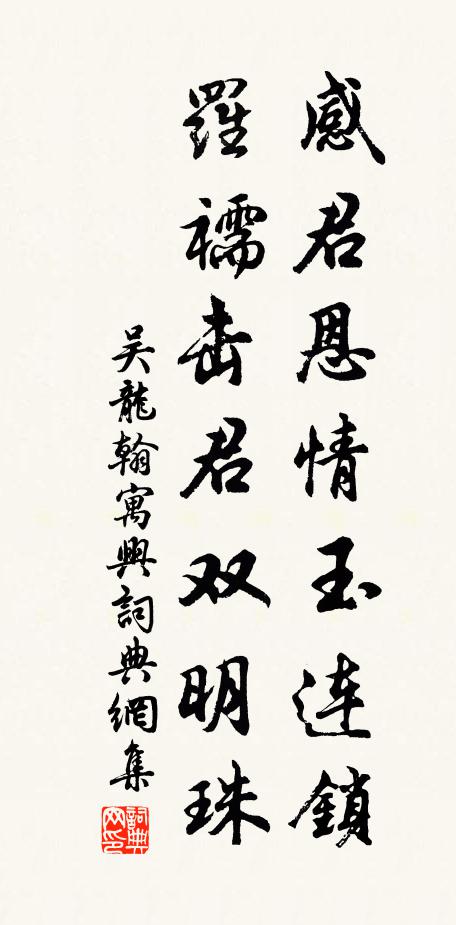 感君恩情玉连鎖
羅襦击君双明珠
吴龍翰寓興詞典網集
詞典网印